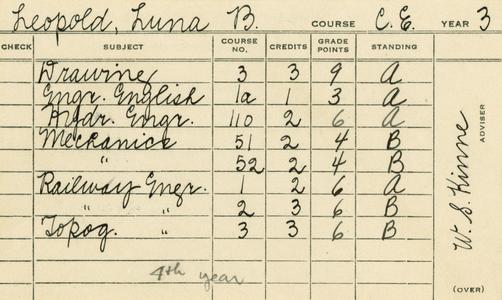 Leopold, Luna B. COURSE C.E. YEAR 3
CHECK SUBJECT COURSE NO. CREDITS GRADE POINTS STANDING
Drawing 3 3 9 A
Engr. English 1a 1 3 A
Hydr. Engr. 110 2 6 A
Mechanics 51 2 4 B
" 52 2 4 B
Railway Engr. 1 2 6 A
" " 2 3 6 B
Topog. " 3 3 6 B
4th year
W. S. Kinne
ADVISER
(OVER)